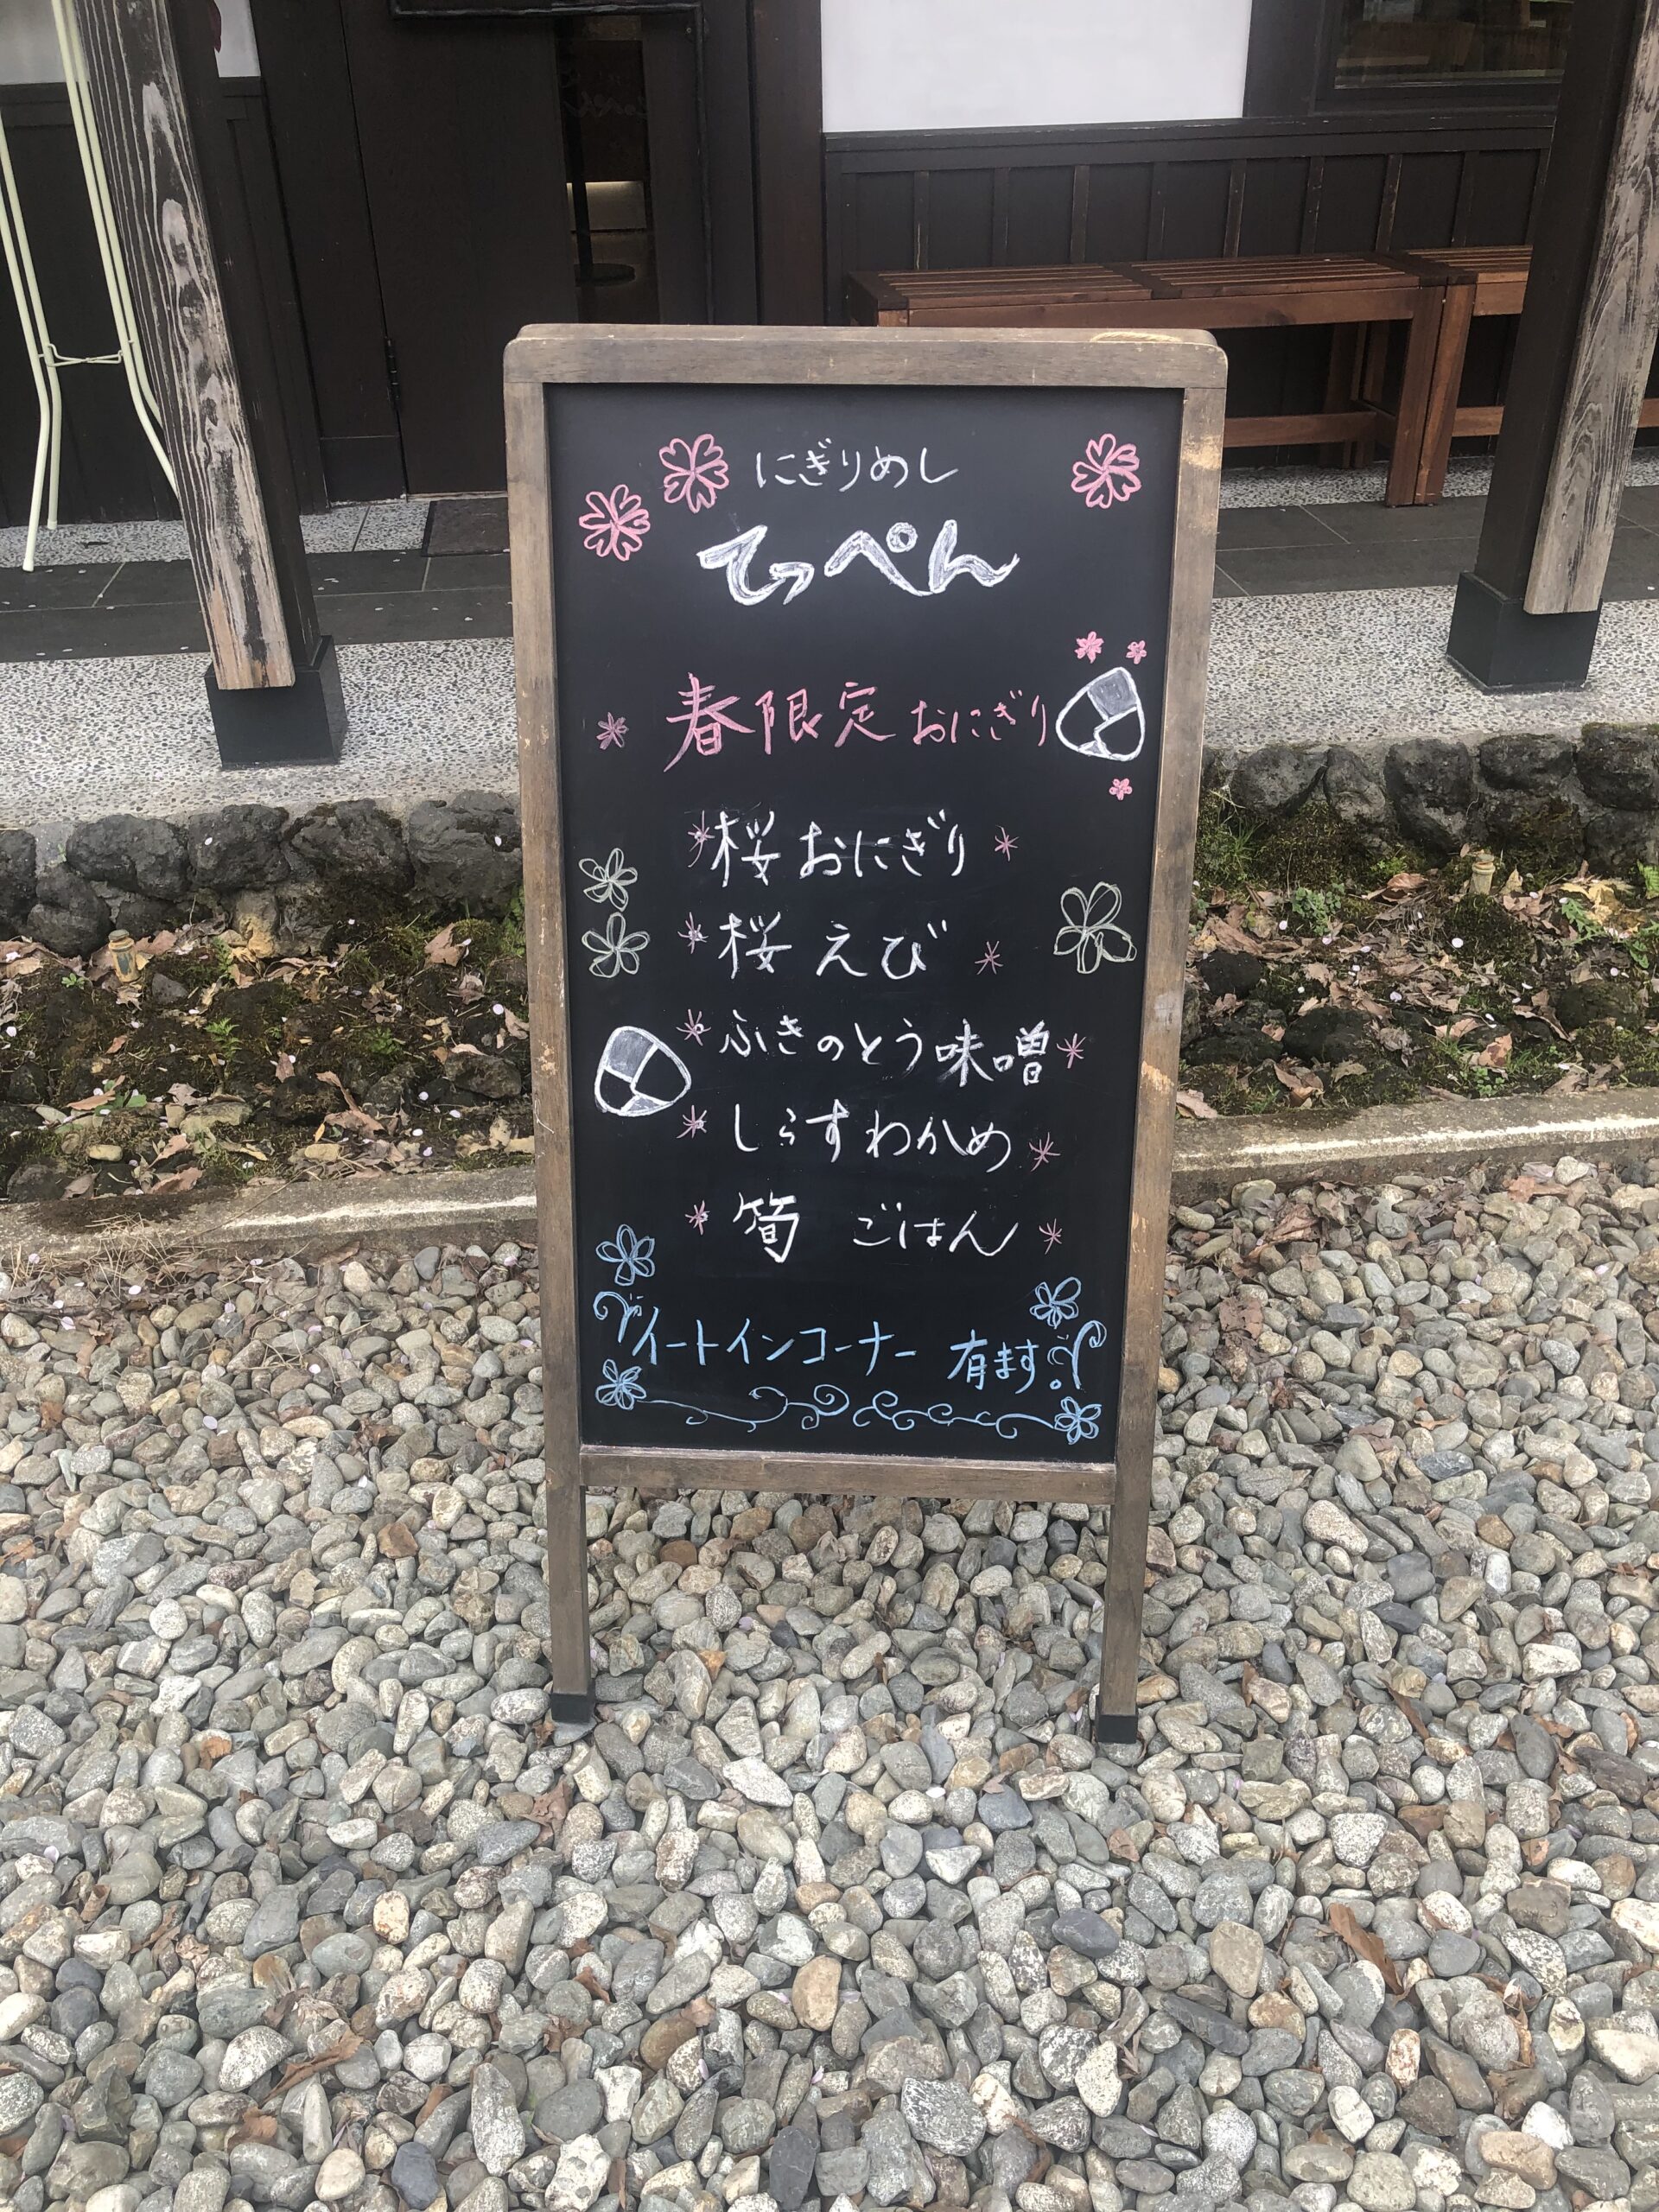 にぎりめし
てっぺん
春限定おにぎり
桜おにぎり
桜えび
ふきのとう味噌
しらすわかめ
筍 ごはん
イートインコーナー 有ます。